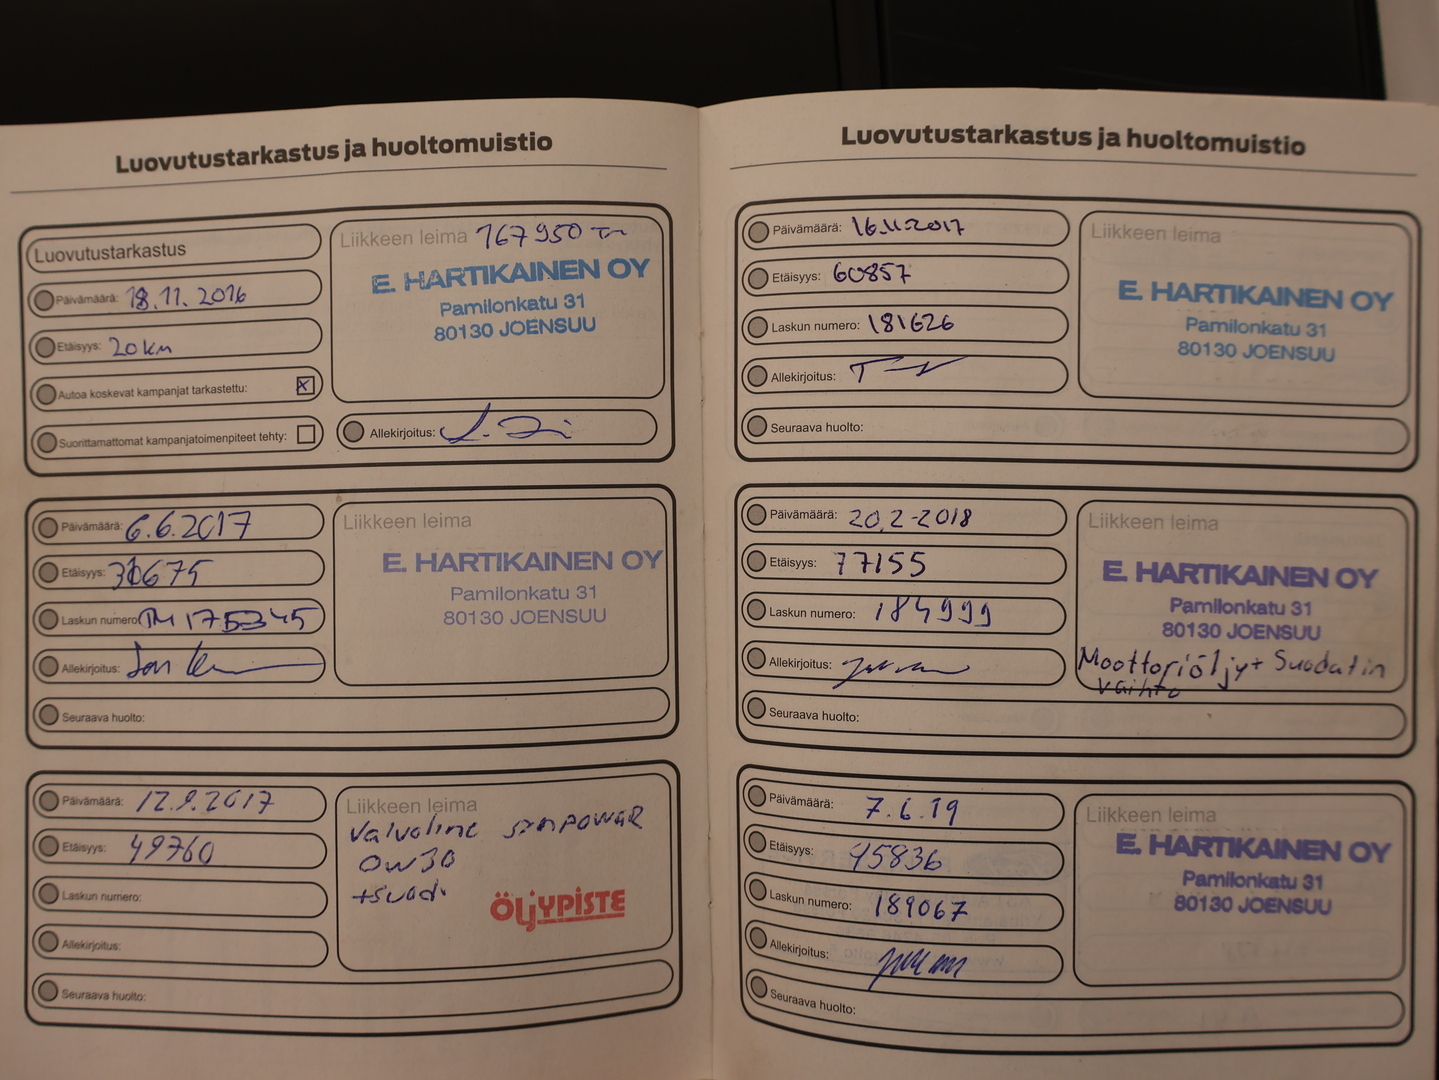 Luovutustarkastus ja huoltomuistio
Luovutustarkastus
Päivämäärä: 18.11.2016
Etäisyys: 20 km
Autoa koskevat kampanjat tarkastettu: x
Suorittamattomat kampanjatoimenpiteet tehty:
Liikkeen leima 167950
E. HARTIKAINEN OY
Pamilonkatu 31
80130 JOENSUU
Allekirjoitus:
Päivämäärä: 6.6.2017
Etäisyys: 30675
Laskun numero: 175345
Allekirjoitus:
Seuraava huolto:
Liikkeen leima
E. HARTIKAINEN OY
Pamilonkatu 31
80130 JOENSUU
Päivämäärä: 12.9.2017
Etäisyys: 49760
Laskun numero:
Allekirjoitus:
Seuraava huolto:
Liikkeen leima
Valvoline synpower
0W30
+suod.
ÖLJYPISTE
Luovutustarkastus ja huoltomuistio
Päivämäärä: 16.11.2017
Etäisyys: 60857
Laskun numero: 181626
Allekirjoitus:
Seuraava huolto:
Liikkeen leima
E. HARTIKAINEN OY
Pamilonkatu 31
80130 JOENSUU
Päivämäärä: 20.2-2018
Etäisyys: 77155
Laskun numero: 184999
Allekirjoitus:
Seuraava huolto:
Liikkeen leima
E. HARTIKAINEN OY
Pamilonkatu 31
80130 JOENSUU
Moottoriöljy+ Suodatin
vaihto
Päivämäärä: 7.6.19
Etäisyys: 95836
Laskun numero: 189067
Allekirjoitus:
Seuraava huolto:
Liikkeen leima
E. HARTIKAINEN OY
Pamilonkatu 31
80130 JOENSUU